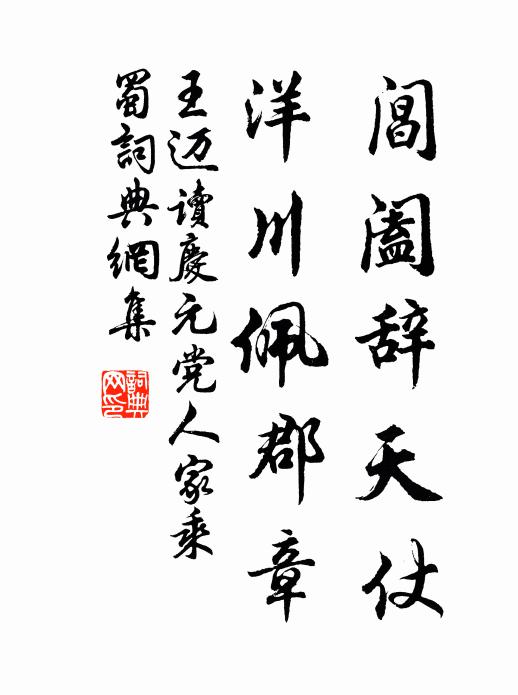 閶阖辞天仗
洋川佩郡章
王迈读慶元党人家乘
蜀詞典網集
詞典网印